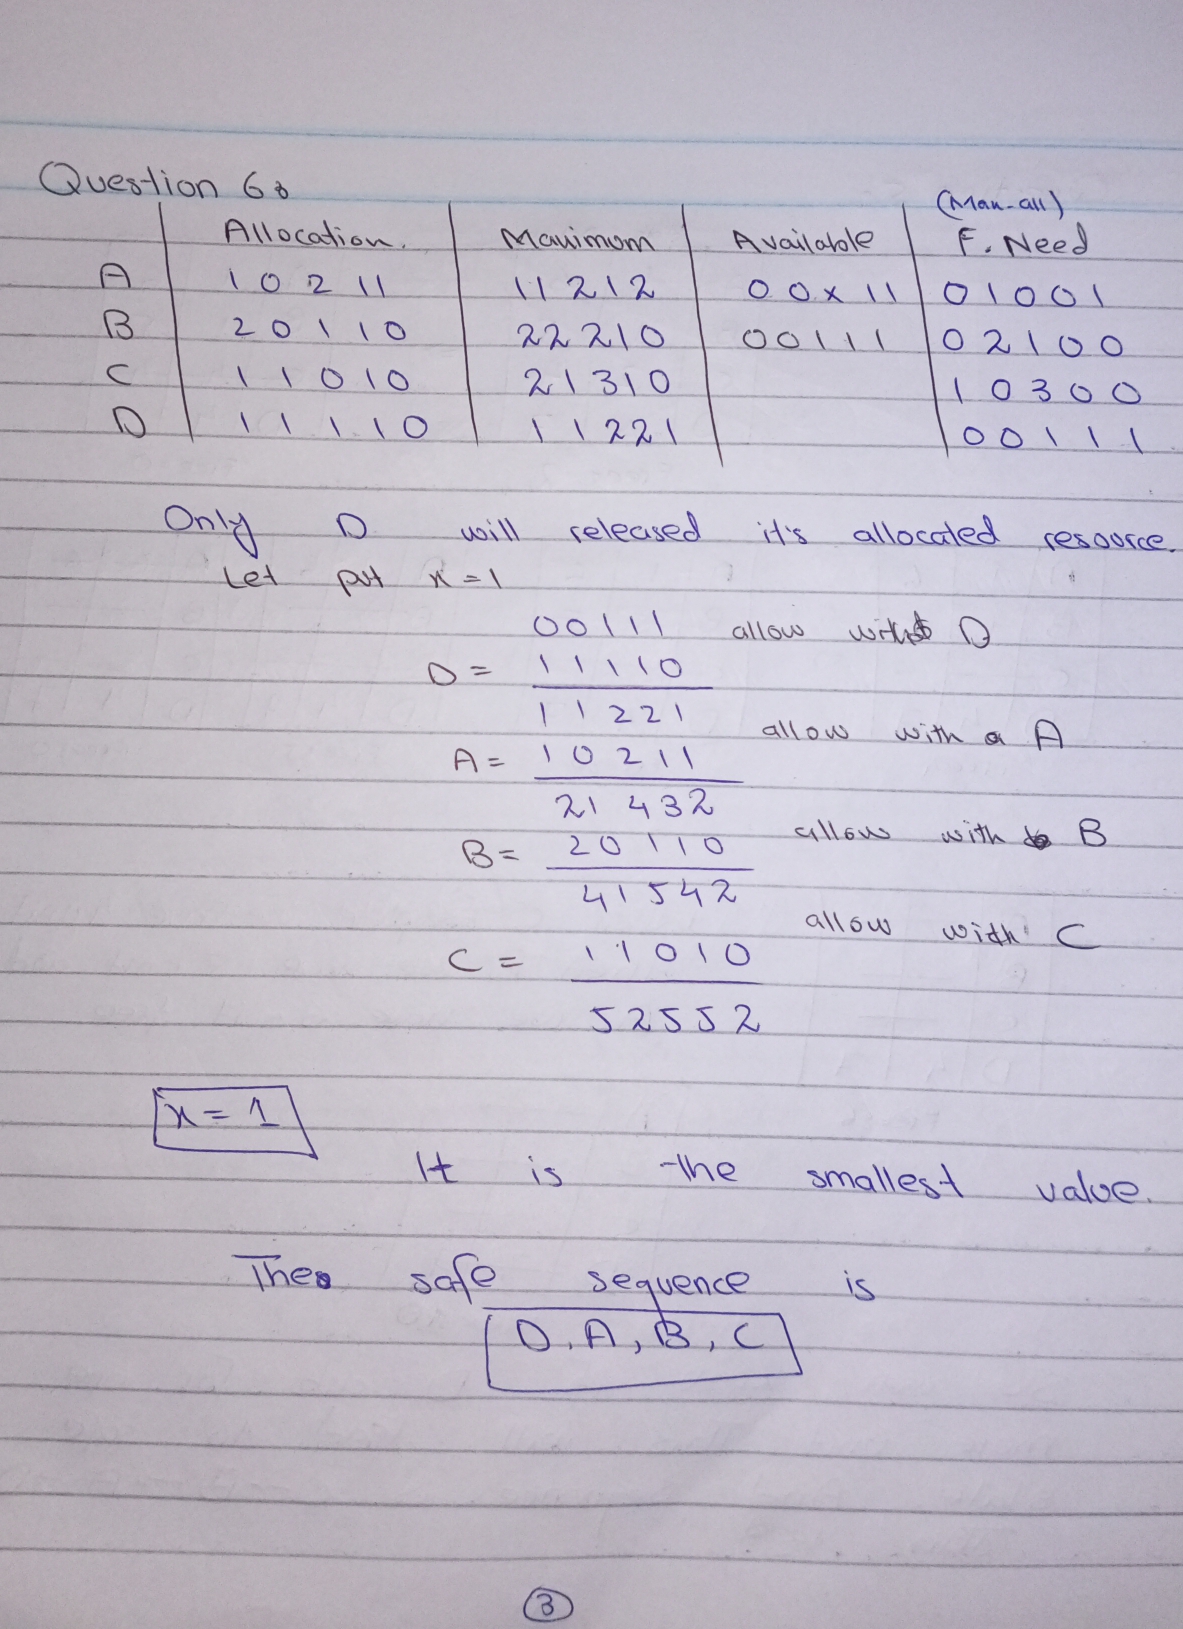 Question 6:
(Man-all)
Allocation. Mauimum Available F. Need
A 1 0 2 1 1 1 1 2 1 2 0 0 x 1 1 0 1 0 0 1
B 2 0 1 1 0 2 2 2 1 0 0 0 1 1 1 0 2 1 0 0
C 1 1 0 1 0 2 1 3 1 0 1 0 3 0 0
D 1 1 1 1 0 1 1 2 2 1 0 0 1 1 1
Only D will released it's allocated resource.
Let put x=1
0 0 1 1 1 allow with D
D = 1 1 1 1 0
1 1 2 2 1 allow with a A
A = 1 0 2 1 1
2 1 4 3 2 allow with B
B = 2 0 1 1 0
4 1 5 4 2 allow with C
C = 1 1 0 1 0
5 2 5 5 2
x = 1
It is the smallest value.
The safe sequence is
D, A, B, C
3